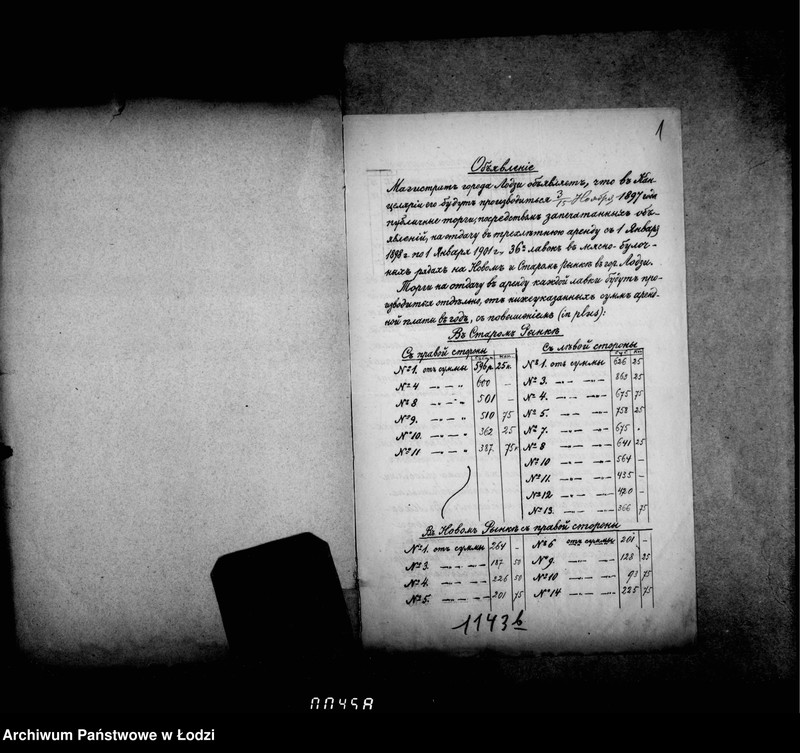 1
Объявленіе
Магистратъ города Лодзи объявляетъ, что въ Кан-
целяріи его будутъ производиться 3/15 Ноября 1897 года
публичные торги, посредствомъ запечатанныхъ объ-
явленій, на отдачу въ трехлѣтнюю аренду съ 1 Января
1898 г. по 1 Января 1901 г., 36ти лавокъ въ мясно-булоч-
ныхъ рядахъ на Новомъ и Старомъ Рынкѣ въ гор. Лодзи.
Торги на отдачу въ аренду каждой лавки будутъ про-
изводиться отдѣльно, отъ нижеуказанныхъ суммъ аренд-
ной платы въ годъ, съ повышеніемъ (in plus):
Въ Старомъ Рынкѣ
Съ правой стороны
№ 1. отъ суммы 596 р. 25 к.
№ 4 — " — " 600 —
№ 8 — " — " 501 —
№ 9. — " — " 510 75
№ 10. — " — " 362 25
№ 11 — " — " 387. 75 к
Съ лѣвой стороны
Руб. Коп.
№ 1. отъ суммы 626 25
№ 3. — " — 863 25
№ 4. — " — 675 75
№ 5. — " — 758 25
№ 7. — " — 675 "
№ 8 — " — 641 25
№ 10 — " — 564 —
№ 11. — " — 435 —
№ 12 — " — 420 —
№ 13. — " — 366 75
Въ Новомъ Рынкѣ съ правой стороны
№ 1. отъ суммы 264 —
№ 3. — — — 187 50
№ 4. — — — 226 50
№ 5. — — — 201 75
№ 6 отъ суммы 201 —
№ 9. — — 123 25
№ 10 — — 93 75
№ 14 — — 225 75
1143 b
0045A
Archiwum Państwowe w Łodzi